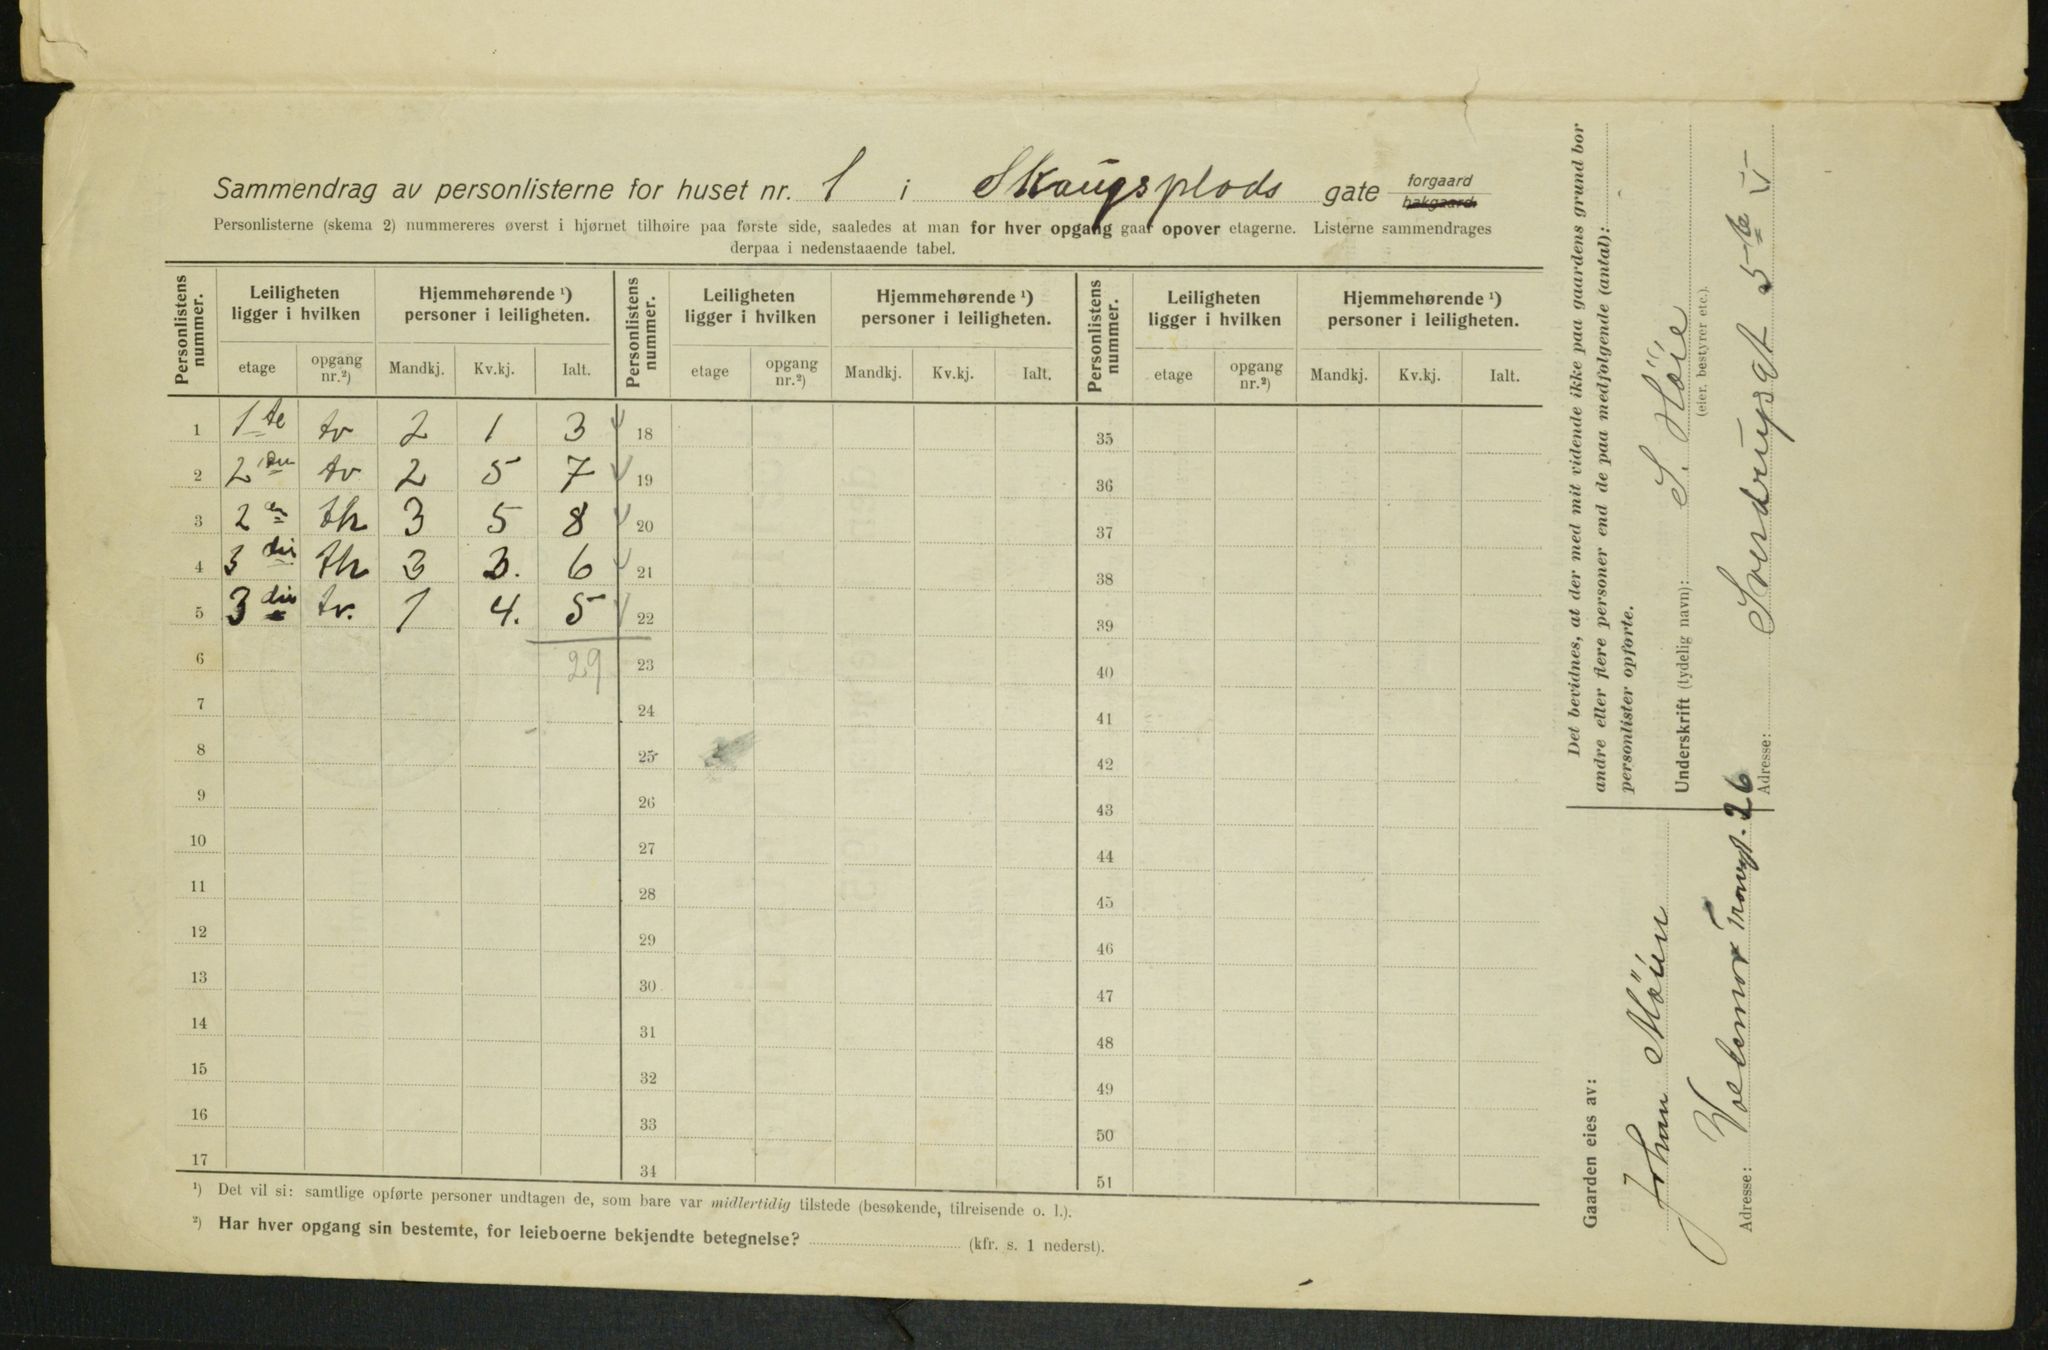 Sammendrag av personlisterne for huset nr. 1 i Skaugsplads gate forgaard hakgaard.
Personlisterne (skema 2) nummereres øverst i hjørnet tilhøire paa første side, saaledes at man for hver opgang gaar opover etagerne. Listerne sammendrages
derpaa i nedenstaaende tabel.
Personlistens nummer. Leiligheten ligger i hvilken Hjemmehørende ¹) personer i leiligheten. Personlistens nummer. Leiligheten ligger i hvilken Hjemmehørende ¹) personer i leiligheten. Personlistens nummer. Leiligheten ligger i hvilken Hjemmehørende ¹) personer i leiligheten.
etage opgang nr.²) Mandkj. Kv.kj. Ialt. etage opgang nr.²) Mandkj. Kv.kj. Ialt. etage opgang nr.²) Mandkj. Kv.kj. Ialt.
1 1 te tv 2 1 3 18 35
2 2 den tv 2 5 7 19 36
3 2 en th 3 5 8 20 37
4 3 die th 3 3. 6 21 38
5 3 die tv. 1 4. 5 22 39
6 29 23 40
7 24 41
8 25 42
9 26 43
10 27 44
11 28 45
12 29 46
13 30 47
14 31 48
15 32 49
16 33 50
17 34 51
¹) Det vil si: samtlige opførte personer undtagen de, som bare var midlertidig tilstede (besøkende, tilreisende o. l.).
²) Har hver opgang sin bestemte, for leieboerne bekjendte betegnelse? (kfr. s. 1 nederst).
Det bevidnes, at der med mit vidende ikke paa gaardens grund bor
andre eller flere personer end de paa medfølgende (antal):
personlister opførte.
Underskrift (tydelig navn): S. Höie
(eier, bestyrer etc.).
Adresse: Sverdrupsgt 5 te V
Gaarden eies av:
Johan Möin
Adresse: 26